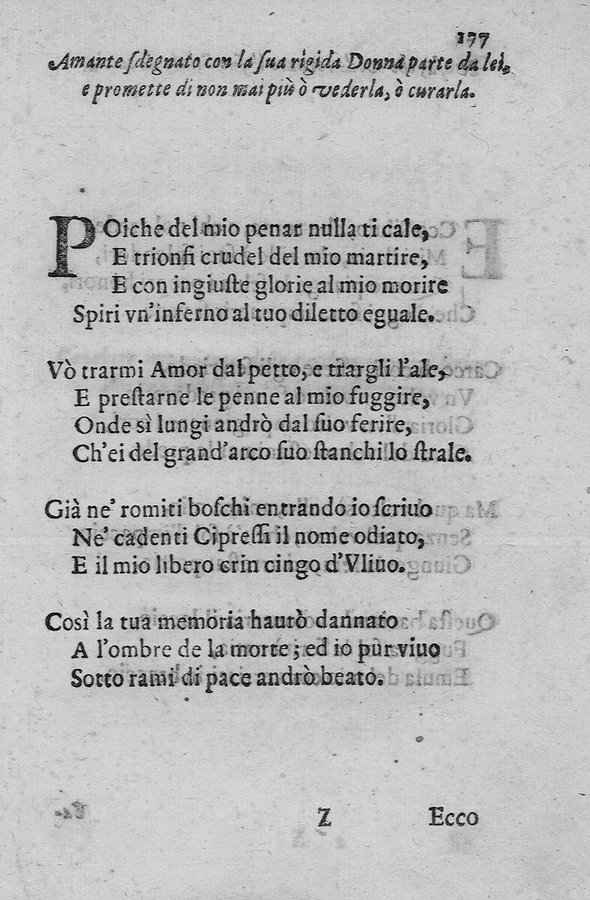 177
Amante ſdegnato con la ſua rigida Donna parte da lei,
e promette di non mai più ò vederla, ò curarla.
POiche del mio penar nulla ti cale,
E trionfi crudel del mio martire,
E con ingiuſte glorie al mio morire
Spiri vn'inferno al tuo diletto eguale.
Vò trarmi Amor dal petto, e trargli l'ale,
E preſtarne le penne al mio fuggire,
Onde sì lungi andrò dal ſuo ferire,
Ch'ei del grand'arco ſuo ſtanchi lo ſtrale.
Già ne' romiti boſchi entrando io ſcriuo
Ne' cadenti Cipreſſi il nome odiato,
E il mio libero crin cingo d'Vliuo.
Così la tua memoria haurò dannato
A l'ombre de la morte; ed io pur viuo
Sotto rami di pace andrò beato.
Z Ecco